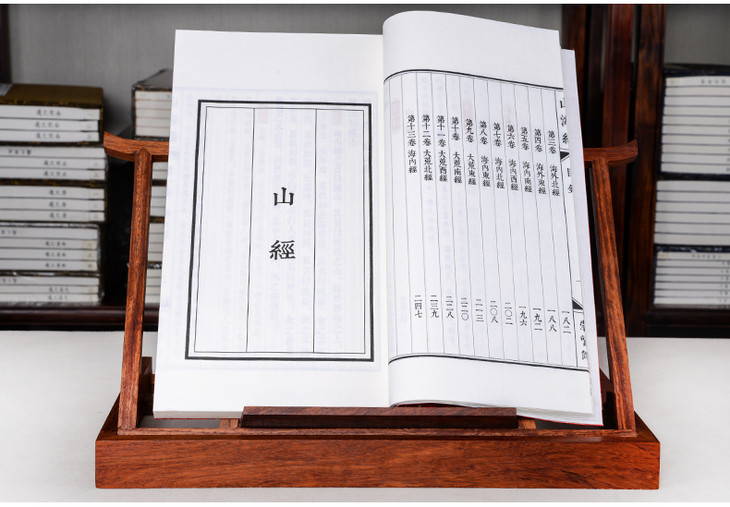 山海經 目錄 一 崇賢館
第三卷 海外北經 一八二
第四卷 海外東經 一八八
第五卷 海內南經 一九二
第六卷 海內西經 一九六
第七卷 海內北經 二〇二
第八卷 海內東經 二〇八
第九卷 大荒東經 二一三
第十卷 大荒南經 二二〇
第十一卷 大荒西經 二二八
第十二卷 大荒北經 二三九
第十三卷 海內經 二四七
山經